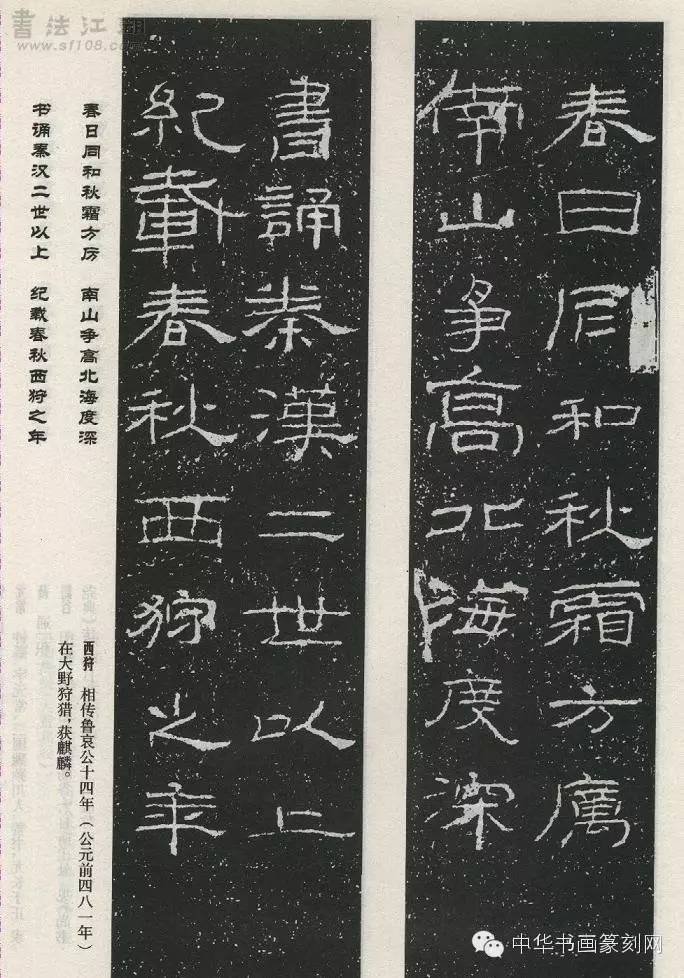 春日同和秋霜方厲
南山争高北海度深
書誦秦漢二世以上
紀載春秋西狩之年
春日同和秋霜方厉　南山争高北海度深
书诵秦汉二世以上　纪载春秋西狩之年
西狩　相传鲁哀公十四年（公元前四八一年）
在大野狩猎，获麒麟。
書法江湖
www.sf108.com
中华书画篆刻网